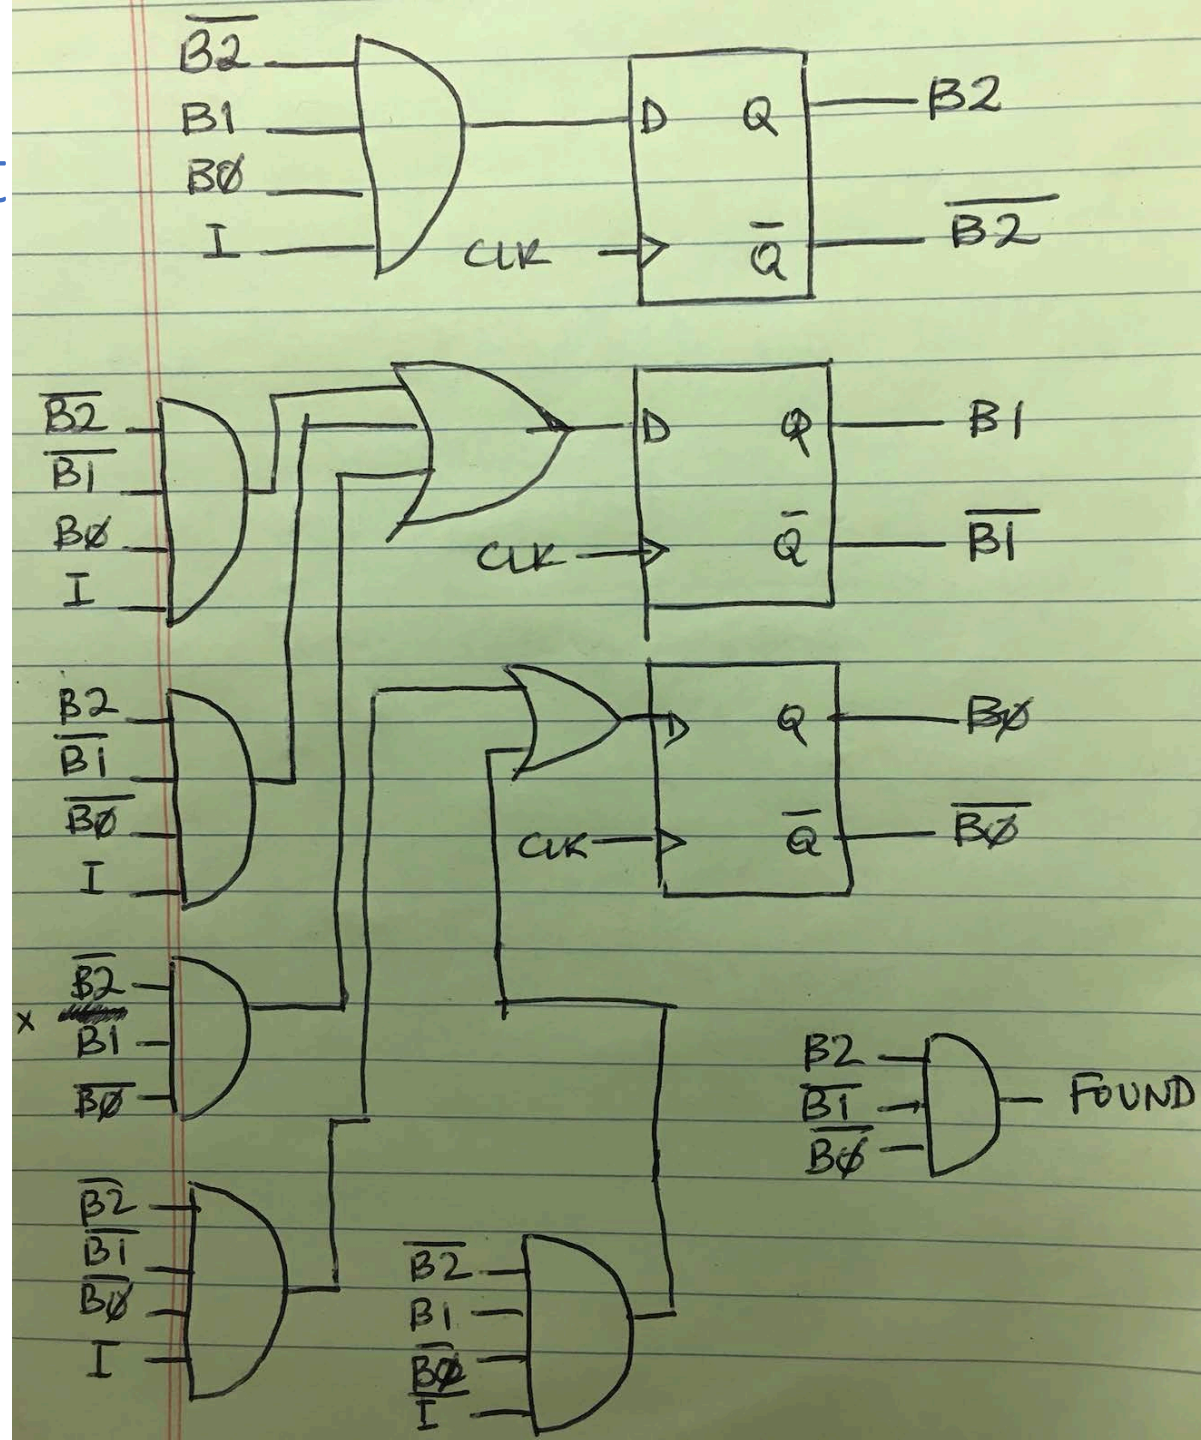 B̅2̅
B1
BØ
I
CLK
D Q
Q̅
B2
B̅2̅
B̅2̅
B̅1̅
BØ
I
CLK
D Q
Q̅
B1
B̅1̅
B2
B̅1̅
B̅Ø̅
I
CLK
D Q
Q̅
BØ
B̅Ø̅
x
B̅2̅
B1
B̅Ø̅
B2
B̅1̅
B̅Ø̅
FOUND
B̅2̅
B̅1̅
B̅Ø̅
I
B̅2̅
B1
B̅Ø̅
I̅